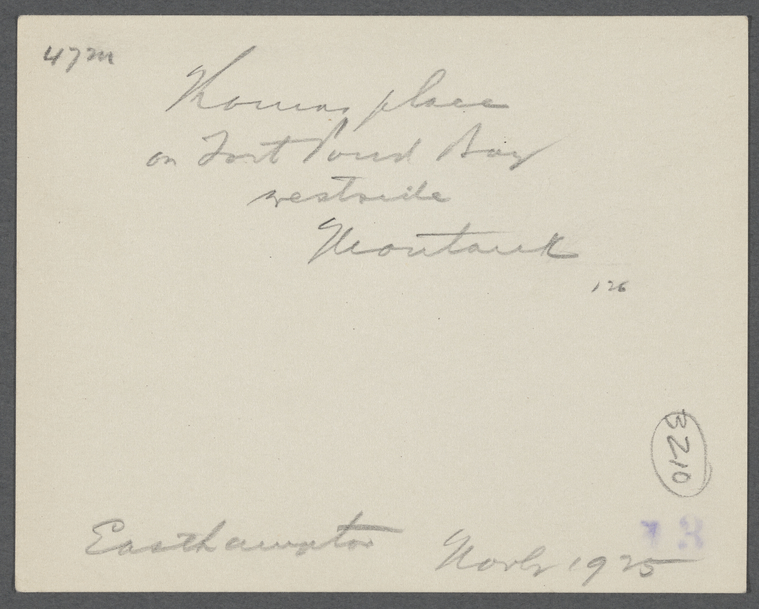 47m
Thomas place
on Fort Pond Bay
westside
Montauk
126
3210
13
Easthampton Novbr 1925